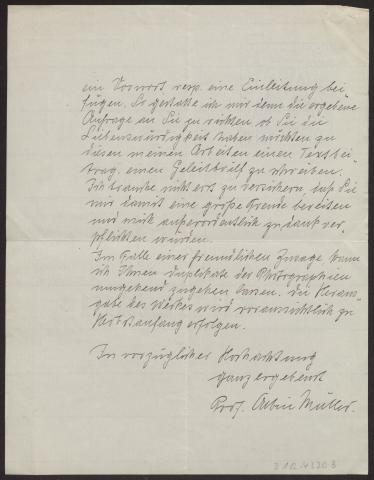 ein Vorwort resp. eine Einleitung bei
fügen. So gestatte ich mir denn die ergebene
Anfrage an Sie zu richten ob Sie die
Liebenswürdigkeit haben möchten zu
diesen meinen Arbeiten einen Textbei
trag, einen Geleitbrief zu schreiben.
Ich brauche nicht erst zu versichern, daß Sie
mir damit eine große Freude bereiten
und mich außerordentlich zu Dank ver
pflichten würden.
Im Falle einer freundlichen Zusage kann
ich Ihnen Duplikate der Photographien
umgehend zugehen lassen. Die Heraus
gabe des Werkes wird voraussichtlich zu
Herbstanfang erfolgen.
In vorzüglicher Hochachtung
ganz ergebenst
Prof. Albin Müller.